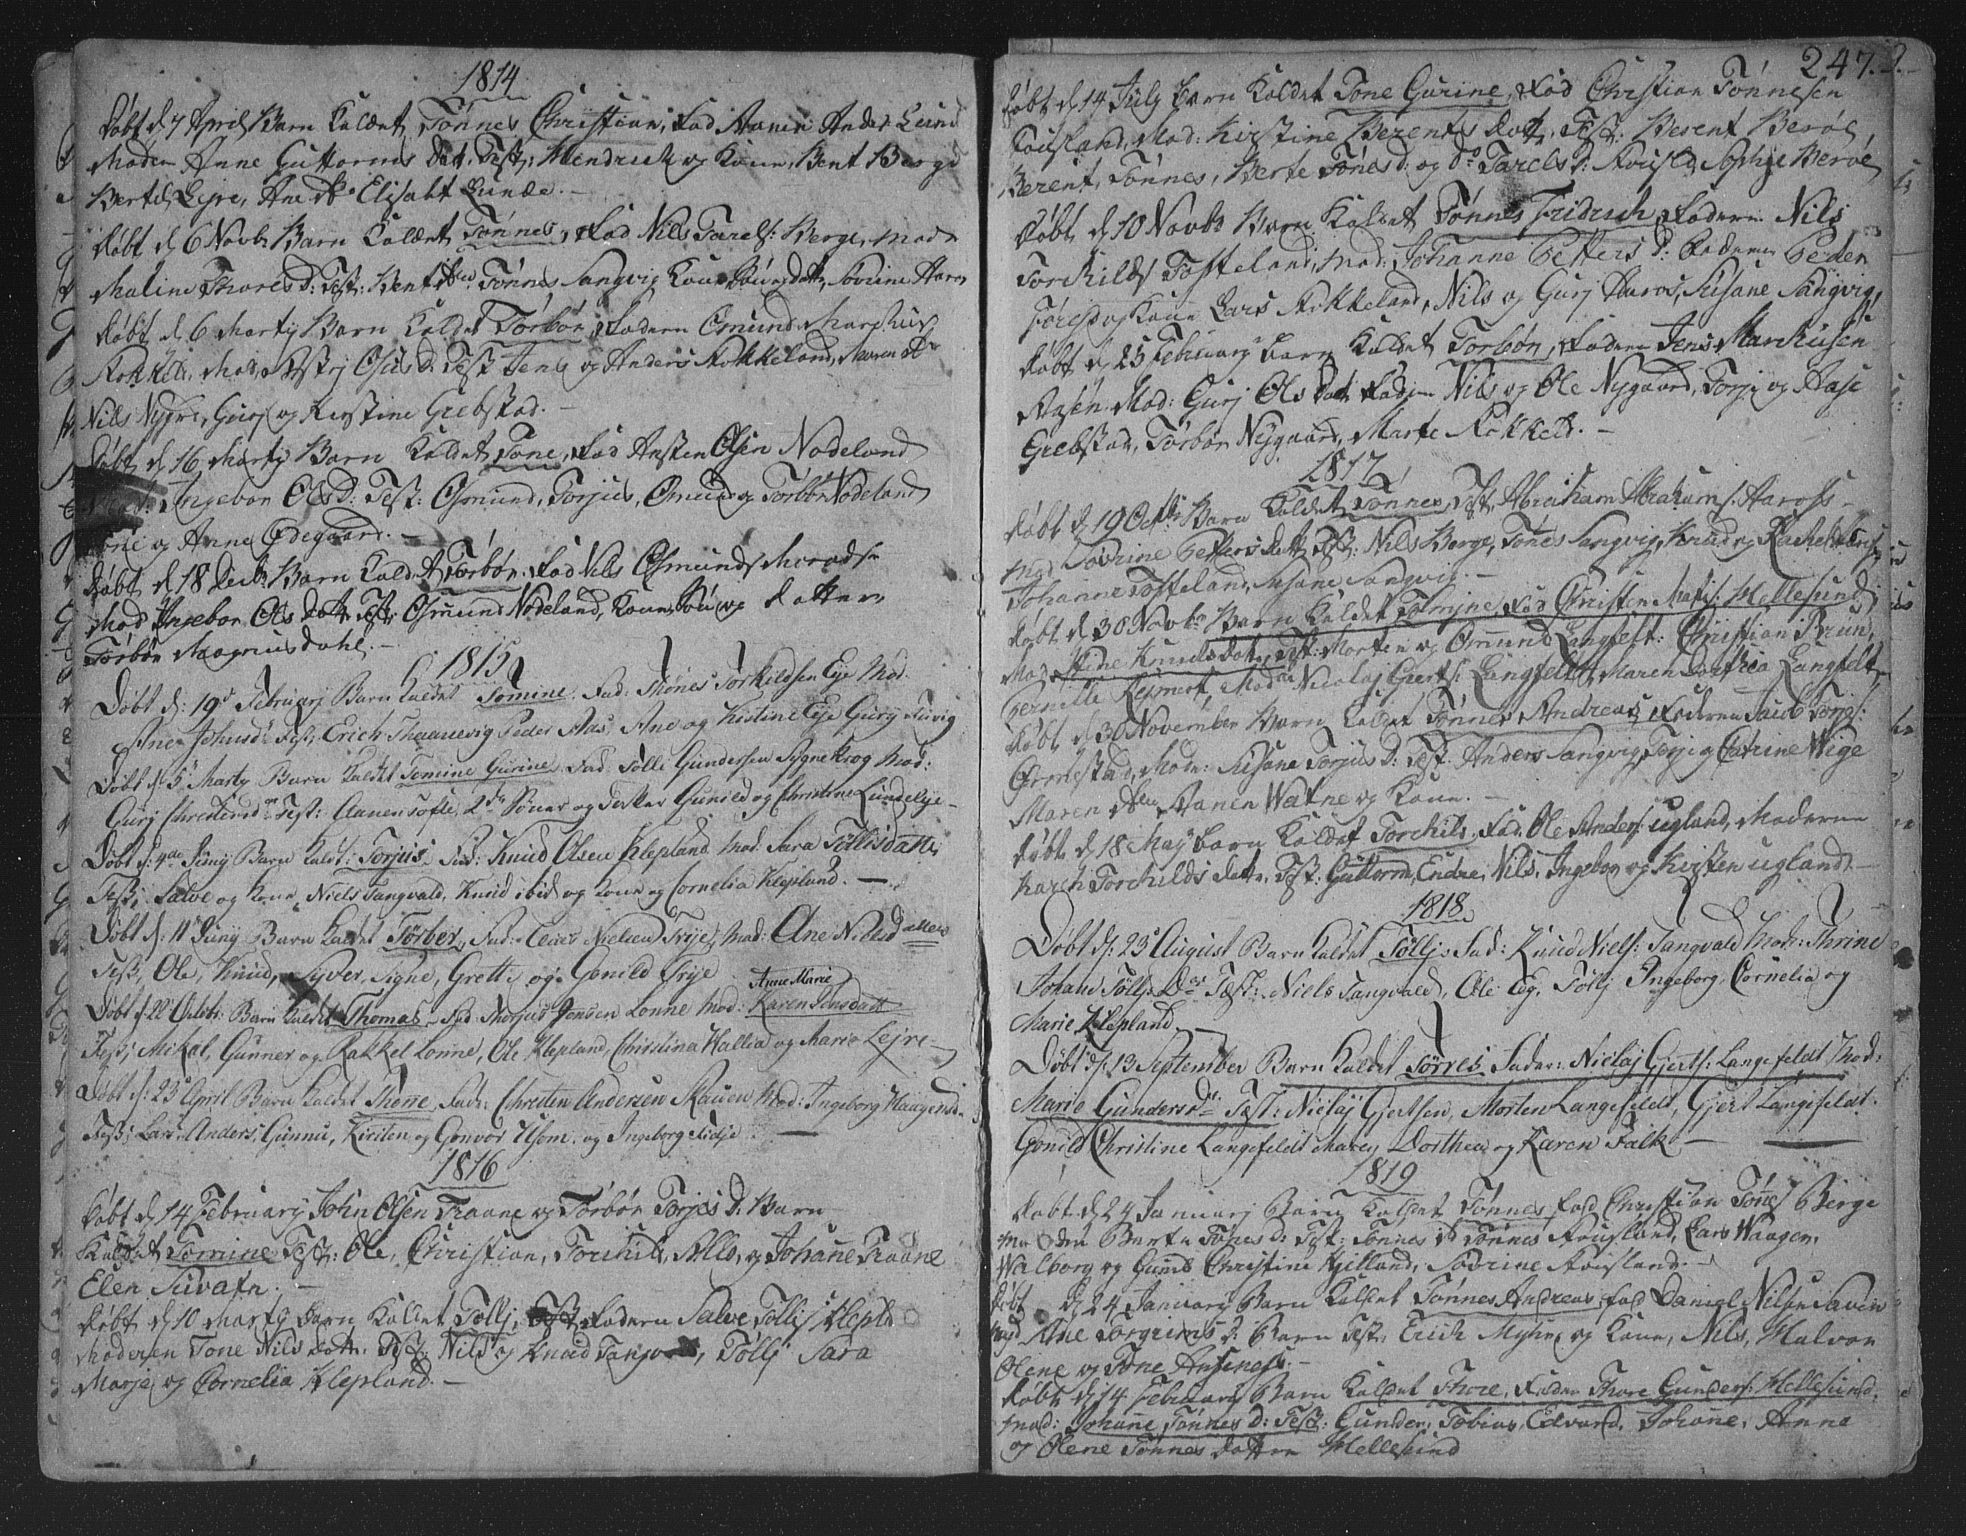 1814
Døbt d 7 April Barn Kaldet Tønnes Christian, Fad Aanen Anders Lund
Moder Anne Guttorms Dat, Test: Hendrich og Kone, Bent Berge
Bertel Eyre, Ane Elisabt Lunde. –
Døbt d 6 Novb: Barn Kaldet Tønnes, Fad Nils Tarels: Berge, Mod
Maline Thores D: Test: Bent Tønnes Sangvig Kone Sovine Aaros
Døbt d 6 Marty Barn Kaldet Torbør, Faderen Omund Marchus
Røkkeln, Mod. Astrj Osuls D: Test Jens og Anders Røkkeland, Maren
Nils Nyere, Gurj og Kirstine Grebstad. –
Døbt d 16 Marty Barn Kaldet Tone, Fad Ansten Olsen Nodeland
Mod: Ingebor Ols D: Test: Osmund, Torjus, Omund og Torbør Nodeland
Tone og Anne Ødegaard. –
Døbt d 18 Decb: Barn Kaldet Torbør. Fad Nils Osmunds
Mod Ingebor Ols Datt. Test: Osmund Nodeland, Kone, og Datter
Torbør Magnusdahl. –
1815
Døbt d: 19 Februarj Barn Kaldet Tomine. Fad: Thønes Torkildsen Eje Mod.
Ane Johnsd: Test: Erich Traanevig Peder Aas, Ane og Kistine Eje Gurj
Døbt d: 5 Marty Barn Kaldet Tomine Gurine, Fad: Tolli Gundersen Sygnekrog Mod:
Gurj Christensd Test: Aanen Tofte, Gunild og Christine Lundeleje –
Døbt d: 4de Junj Barn Kaldt: Torjus. Fad: Knud Olsen Klepland Mod: Sara Tollisdatt:
Test: Salve og Kone, Niels Tangvald, Knud ibid og Kone og Cornelia Klepland. –
Døbt d: 11 Junj Barn Kaldet Torber, Fad: Nielsen Trije, Mod: Ane Nielsdatter
Test: Ole, Knud, Syver, Signe, Grethe og Gonild Trije
Anne Marie
Døbt d 22 Octobr: Barn Kaldet Thomas – Fad: Thorjus Jonsen Lonne Mod: Karen Jensdatt
Test: Mikal, Gunner og Rakkel Lonne, Ole Klepland, Christina Hallia og Maria Lejre –
Døbt d: 23 April Barn Kaldet Thorre, Fad: Christen Andersen Rauen Mod: Ingeborg Haagensd:
Test: Lars Anders, Gunnu, Kirsten og Gonvor Usom og Ingeborg Fidje –
1816
Døbt d 14 Februarj John Olsen Traane og Torbør Torjes D: Barn
Kaldet Tomine Test: Ole, Christian, Torchil, Alls, og Johane Traane
Elen Suvatn. –
Døbt d 10 Marty Barn Kaldet Tollj, Faderen Salve Tollis Klepl
Moderen Tone Nils Dotr. Test: Nils og Knud Tang, Tollj Sara
Marje og Cornelia Klepland. –
247.
Døbt d 14 July Barn Kaldet Tone Gurine, Fad Christian Tønnesen
Rousland, Mod: Kirstine Berents Dott. Test: Berent Berøe,
Berent, Tønnes, Berte Tønes D: og Do Tarels D: Rousld, Sophye Berøe
Døbt d 10 Novb: Barn Kaldet Tønnes Fridrich, Faderen Nils
Torchilds Tofteland, Mod: Johanne Petters D: Peder
og Kone Lars Røkkeland, Nils og Gurj Aaros, Susane Sangvig,
Døbt d 25 February Barn Kaldet Torbør, Faderen Jens Marchusen
Aasen. Mod: Gurj Ols Dat Nils og Ole Nygaard, Torje og Aase
Grebstad, Torbør Nygaard, Marte Røkkeld. –
1817
Døbt d 19 Octb: Barn Kaldet Tønnes, Abraham Abraham s. Aaross –
Mod Sovrine Petters Datt Test: Nils Berge, Tønes Sangvig, Knud og Rachel
Johanne Tofteland, Susane Sangvig. –
Døbt d 30 Novb: Barn Kaldet Tomine, Fad Christen Mats: Hellesund
Mod Stine Knudsdatr, Test: Morten og Omund Langfelt: Christian Brun,
Pernille Reimert, Nicolaj Gierts: Langfeldt, Maren Dorthea Langfelt
Døbt d 30 November Barn Kaldet Tønnes Andreas, Faderen Jacob Torjes:
Ormestad, Mod: Susane Torjus D: Test: Anders Sangvig, Terje og Catrine Wige
Maren Aanen Watne og Kone. –
Døbt d 18 May Barn Kaldet Torchils, Fad: Ole Anders: Ugland, Moderen
Karen Torchilds Dattr. Test: Guttorm, Endre, Nils, Ingebor og Kirsten Ugland. –
1818
Døbt d: 23 August Barn Kaldet Tollj, Fad: Knud Niels: Tangvald Mod: Thrine
Johane Tollis D Test: Niels Tangvald, Ole Eg, Tollj Ingeborg, Cornelia og
Marie Klepland –
Døbt d: 13 September Barn Kaldet Torres, Fader: Niclaj Gjerts: Langefeldt Mod:
Marie Gunders D: Test: Niclaj Gjertsen, Morten Langefeldt, Gjert Langefeldt.
Gonild Christine Langefeldt Maren, Dorthea og Karen Falk –
1819
Døbt d 24 Januarj Barn Kaldet Tønnes, Fad Christian Tønes Berge
Moderen Berte Tønes D: Test: Tønnes Tønnes Rousland, Lars Waagen,
Walborg og Guml Christine Hielland, Sovrine Rousland. –
Døbt d 24 January Barn Kaldet Tønnes Andreas, Fad Daniel Nilsen
Mod Ane Torgrims D: Barn Test: Erich Myhre og Kone, Nils, Halvor
Olene og Tone –
Døbt d 14 Februarj Barn Kaldet Thore, Fader Thore Gunders: Hellesund
Mod: Johanne Tønnes D: Test: Gunder, Tobias, Edvard, Johanne, Anne
og Olene Tønnes Datter Hellesund